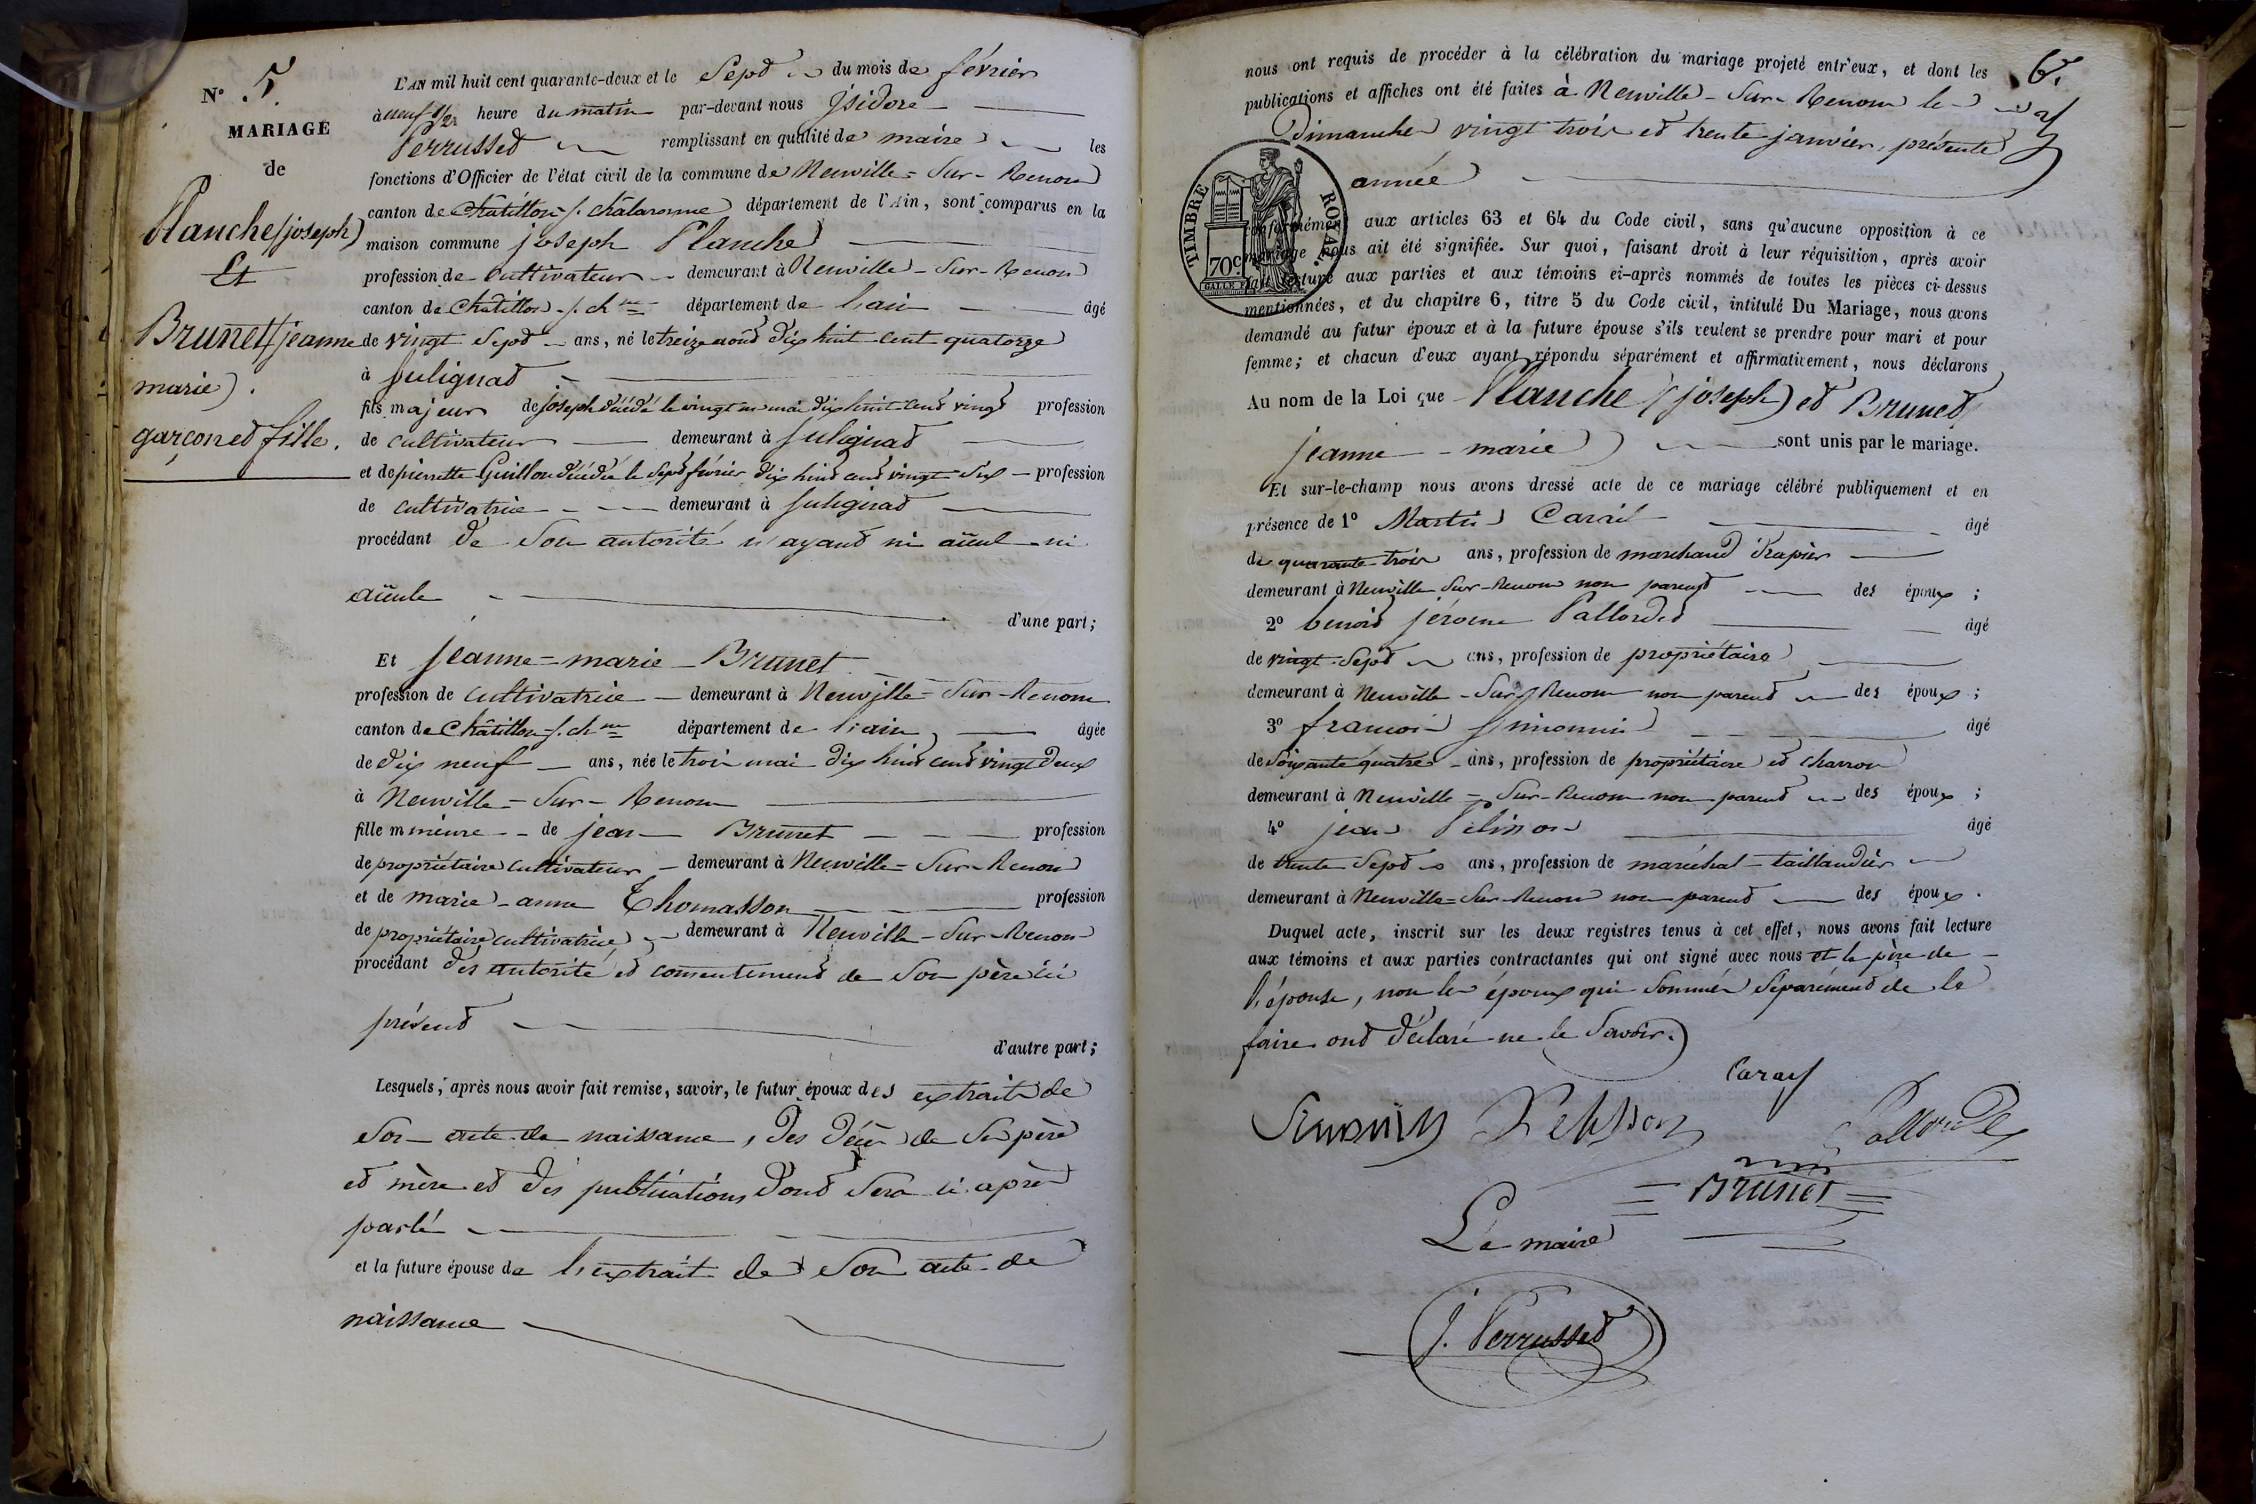 N° 5.
MARIAGE
de
Planche (joseph)
Et
Brunet (jeanne
marie).
garçon et fille.
L'AN mil huit cent quarante-deux et le Sept du mois de février
à neuf 1/2 heure du matin par-devant nous jsidore
Perrusset remplissant en qualité de maire les
fonctions d'Officier de l'état civil de la commune de Neuville-Sur-Renom
canton de Châtillon s. châlaronne département de l'Ain, sont comparus en la
maison commune joseph Planche
profession de cultivateur demeurant à Neuville-Sur-Renom
canton de Châtillon s. ch ne département de l'ain âgé
de vingt Sept ans, né le treize août dix huit cent quatorze
à Sulignat
fils majeur de joseph décédé le vingt un mai dix huit cent vingt profession
de cultivateur demeurant à Sulignat
et de pierrette Guillon décédée le Sept février dix huit cent vingt six profession
de cultivatrice demeurant à Sulignat
procédant de Son autorité n'ayant ni aïeul ni
aïeule
d'une part;
Et jeanne-marie Brunet
profession de cultivatrice demeurant à Neuville-Sur-Renom
canton de Châtillon s. ch ne département de l'ain âgée
de dix neuf ans, née le trois mai dix huit cent vingt deux
à Neuville-Sur-Renom
fille mineure de jean Brunet profession
de propriétaire cultivateur demeurant à Neuville-Sur-Renom
et de marie-anne Thomasson profession
de propriétaire cultivatrice demeurant à Neuville-Sur-Renom
procédant des autorité et consentement de Son père ici
présent
d'autre part;
Lesquels, après nous avoir fait remise, savoir, le futur époux des extraits de
Son acte de naissance, des décès de Ses père
et mère et des publications dont Sera ci après
parlé
et la future épouse de l'extrait de Son acte de
naissance
6.
nous ont requis de procéder à la célébration du mariage projeté entr'eux, et dont les
publications et affiches ont été faites à Neuville-Sur-Renom les
Dimanches vingt trois et trente janvier, présente
année
TIMBRE ROYAL.
70c
conformément aux articles 63 et 64 du Code civil, sans qu'aucune opposition à ce
mariage nous ait été signifiée. Sur quoi, faisant droit à leur réquisition, après avoir
fait lecture aux parties et aux témoins ci-après nommés de toutes les pièces ci-dessus
mentionnées, et du chapitre 6, titre 5 du Code civil, intitulé Du Mariage, nous avons
demandé au futur époux et à la future épouse s'ils veulent se prendre pour mari et pour
femme; et chacun d'eux ayant répondu séparément et affirmativement, nous déclarons
Au nom de la Loi que Planche (joseph) et Brunet
jeanne-marie) sont unis par le mariage.
Et sur-le-champ nous avons dressé acte de ce mariage célébré publiquement et en
présence de 1° Martin âgé
de quarante-trois ans, profession de marchand drapier
demeurant à Neuville-Sur-Renom non parent des époux;
2° benoit jérome âgé
de vingt Sept ans, profession de propriétaire
demeurant à Neuville-Sur-Renom non parent des époux;
3° francois Simonin âgé
de Soixante quatre ans, profession de propriétaire et charron
demeurant à Neuville-Sur-Renom non parent des époux;
4° jean Pelisson âgé
de trente Sept ans, profession de maréchal-taillandier
demeurant à Neuville-Sur-Renom non parent des époux.
Duquel acte, inscrit sur les deux registres tenus à cet effet, nous avons fait lecture
aux témoins et aux parties contractantes qui ont signé avec nous et le père de
l'épouse, non les époux qui Sommés Séparément de le
faire ont déclaré ne le Savoir.
Pelisson
Brunet
Le maire
J. Perrusset